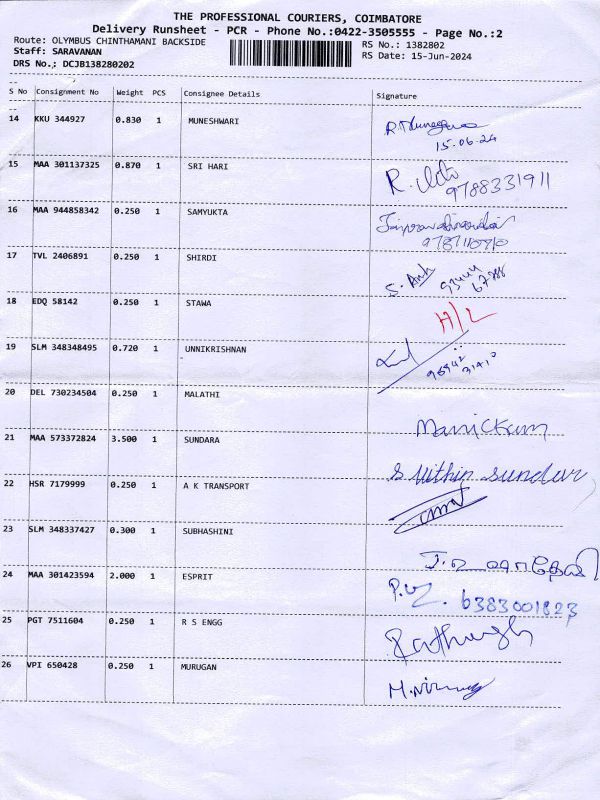 THE PROFESSIONAL COURIERS, COIMBATORE
Delivery Runsheet - PCR - Phone No.:0422-3505555 - Page No.:2
Route: OLYMBUS CHINTHAMANI BACKSIDE RS No.: 1382802
Staff: SARAVANAN RS Date: 15-Jun-2024
DRS No.: DCJB138280202
S No Consignment No Weight PCS Consignee Details Signature
14 KKU 344927 0.830 1 MUNESHWARI
15.06.24
15 MAA 301137325 0.870 1 SRI HARI R.
9788331911
16 MAA 944858342 0.250 1 SAMYUKTA
17 TVL 2406891 0.250 1 SHIRDI
18 EDQ 58142 0.250 1 STAWA H/L
19 SLM 348348495 0.720 1 UNNIKRISHNAN
20 DEL 730234504 0.250 1 MALATHI Manickam
21 MAA 573372824 3.500 1 SUNDARA S Nithin Sundar
22 HSR 7179999 0.250 1 A K TRANSPORT
23 SLM 348337427 0.300 1 SUBHASHINI
24 MAA 301423594 2.000 1 ESPRIT 6383001823
25 PGT 7511604 0.250 1 R S ENGG
26 VPI 650428 0.250 1 MURUGAN